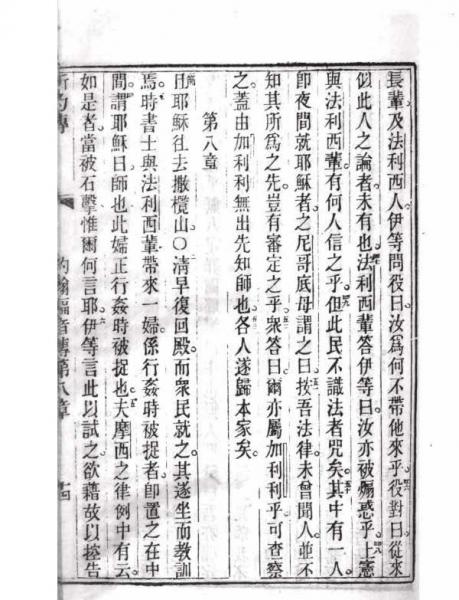 長輩及法利西人伊等問役曰汝為何不帶他來乎役對曰從來
似此人之論者未有也法利西輩答伊等曰汝亦被煽惑乎上憲
與法利西輩有何人信之乎但此民不識法者咒矣其中有一人
即夜間就耶穌者之尼哥底母謂之曰按吾法律未曾聞人並不
知其所為之先豈有審定之乎衆答曰爾亦屬加利利乎可查察
之蓋由加利利無出先知師也各人遂歸本家矣
第八章
且耶穌往去撒欖山〇清早復回殿而衆民就之其遂坐而教訓
焉時書士與法利西輩帶來一婦係行姦時被捉者即置之在中
間謂耶穌曰師也此婦正行姦時被捉也夫摩西之律例中有云
如是者當被石擊惟爾何言耶伊等言此以試之欲藉故以控告
約翰福音傳第八章 十四